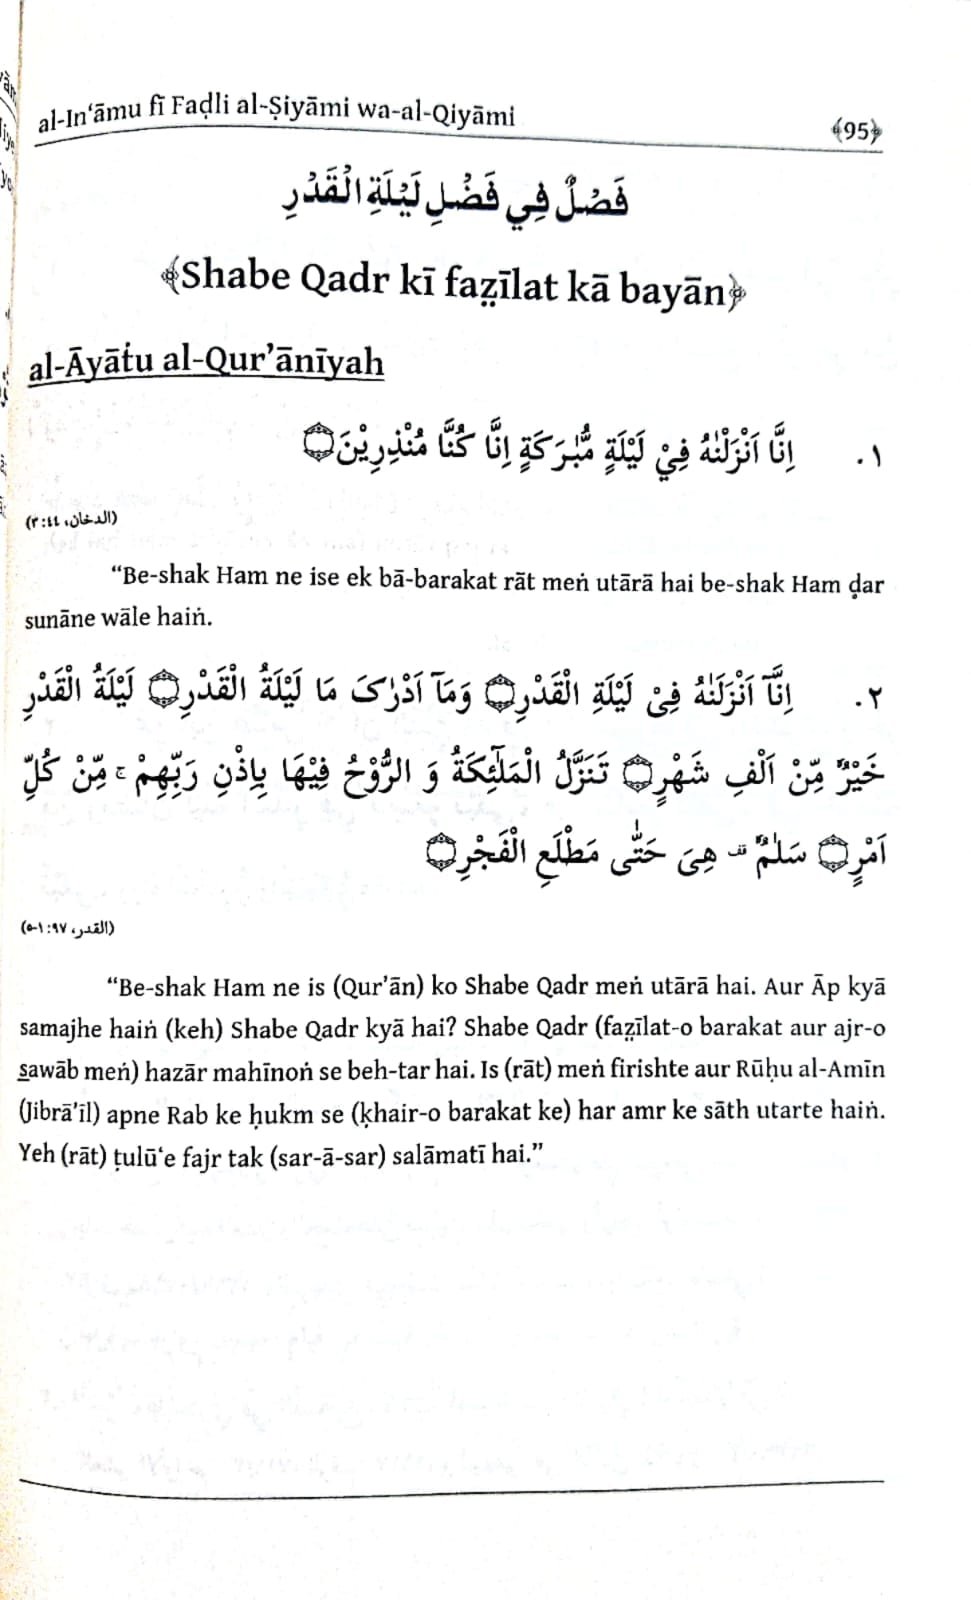 al-In‘āmu fī Faḍli al-Ṣiyāmi wa-al-Qiyāmi
﴾95﴿
فَصْلٌ فِي فَضْلِ لَيْلَةِ الْقَدْرِ
﴾Shabe Qadr kī faẓīlat kā bayān﴿
al-Āyātu al-Qur’ānīyah
١. اِنَّا اَنْزَلْنٰهُ فِيْ لَيْلَةٍ مُّبٰرَكَةٍ اِنَّا كُنَّا مُنْذِرِيْنَ۝
(الدخان، ٤٤:٣)
“Be-shak Ham ne ise ek bā-barakat rāt meṅ utārā hai be-shak Ham ḍar
sunāne wāle haiṅ.
٢. اِنَّآ اَنْزَلْنٰهُ فِیْ لَیْلَةِ الْقَدْرِ۝ وَمَآ اَدْرٰکَ مَا لَیْلَةُ الْقَدْرِ۝ لَیْلَةُ الْقَدْرِ
خَیْرٌ مِّنْ اَلْفِ شَهْرٍ۝ تَنَزَّلُ الْمَلٰٓئِکَةُ وَ الرُّوْحُ فِیْهَا بِاِذْنِ رَبِّهِمْ ۚ مِّنْ کُلِّ
اَمْرٍ۝ سَلٰمٌ ۛ هِیَ حَتّٰی مَطْلَعِ الْفَجْرِ۝
(القدر، ٩٧:١-٥)
“Be-shak Ham ne is (Qur’ān) ko Shabe Qadr meṅ utārā hai. Aur Āp kyā
samajhe haiṅ (keh) Shabe Qadr kyā hai? Shabe Qadr (faẓīlat-o barakat aur ajr-o
s̱awāb meṅ) hazār mahīnoṅ se beh-tar hai. Is (rāt) meṅ firishte aur Rūḥu al-Amīn
(Jibrā’īl) apne Rab ke ḥukm se (ḳhair-o barakat ke) har amr ke sāth utarte haiṅ.
Yeh (rāt) ṭulū‘e fajr tak (sar-ā-sar) salāmatī hai.”